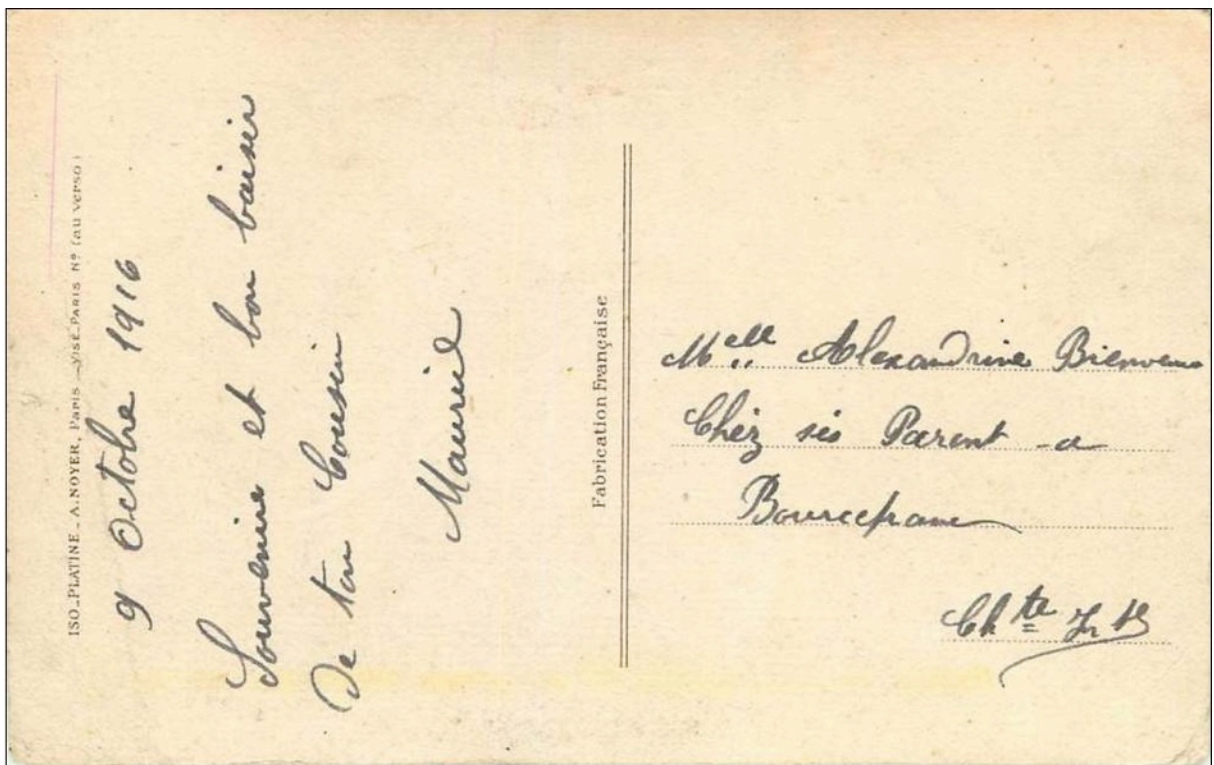 ISO-PLATINE - A. NOYER, Paris - VISÉ PARIS Nº (au verso)
9 Octobre 1916
Souvenire et bon baiser
De ton Cousin
Maurice
Fabrication Française
Melle Alexandrine Bienvenu
Chéz ses Parent a
Bourcefranc
Chte Ire